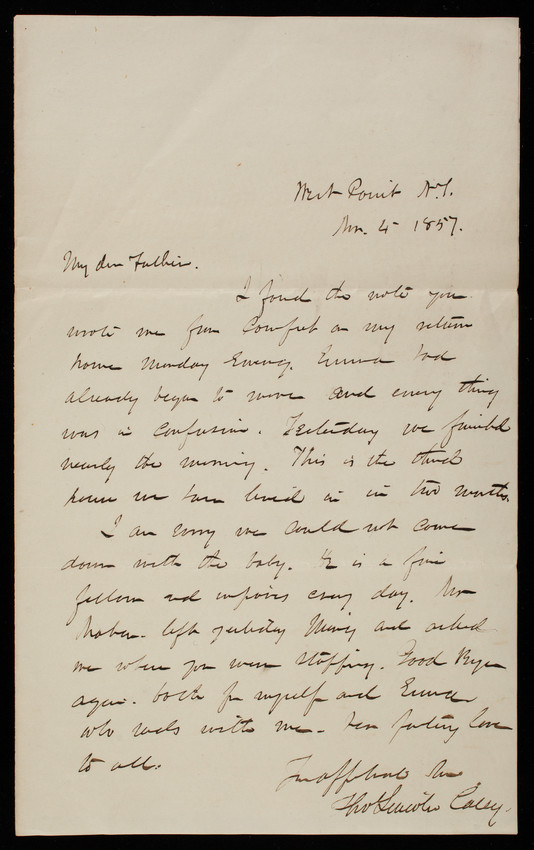 West Point N.Y.
Nov. 4 1857.
My dear Father.
I found the note you
wrote me from Pomfret on my return
home Monday Evening. Emma had
already begun to move and every thing
was in confusion. Yesterday we finished
nearly the moving. This is the third
house we have lived in in two months.
I am sorry we could not come
down with the baby. He is a fine
fellow and improves every day. Mr
Mahan left yesterday Morning and asked
me where you were stopping. Good Bye
again. both for myself and Emma
who sends with me her parting love
to all.
Yr affectionate Son
Thos Lincoln Casey.